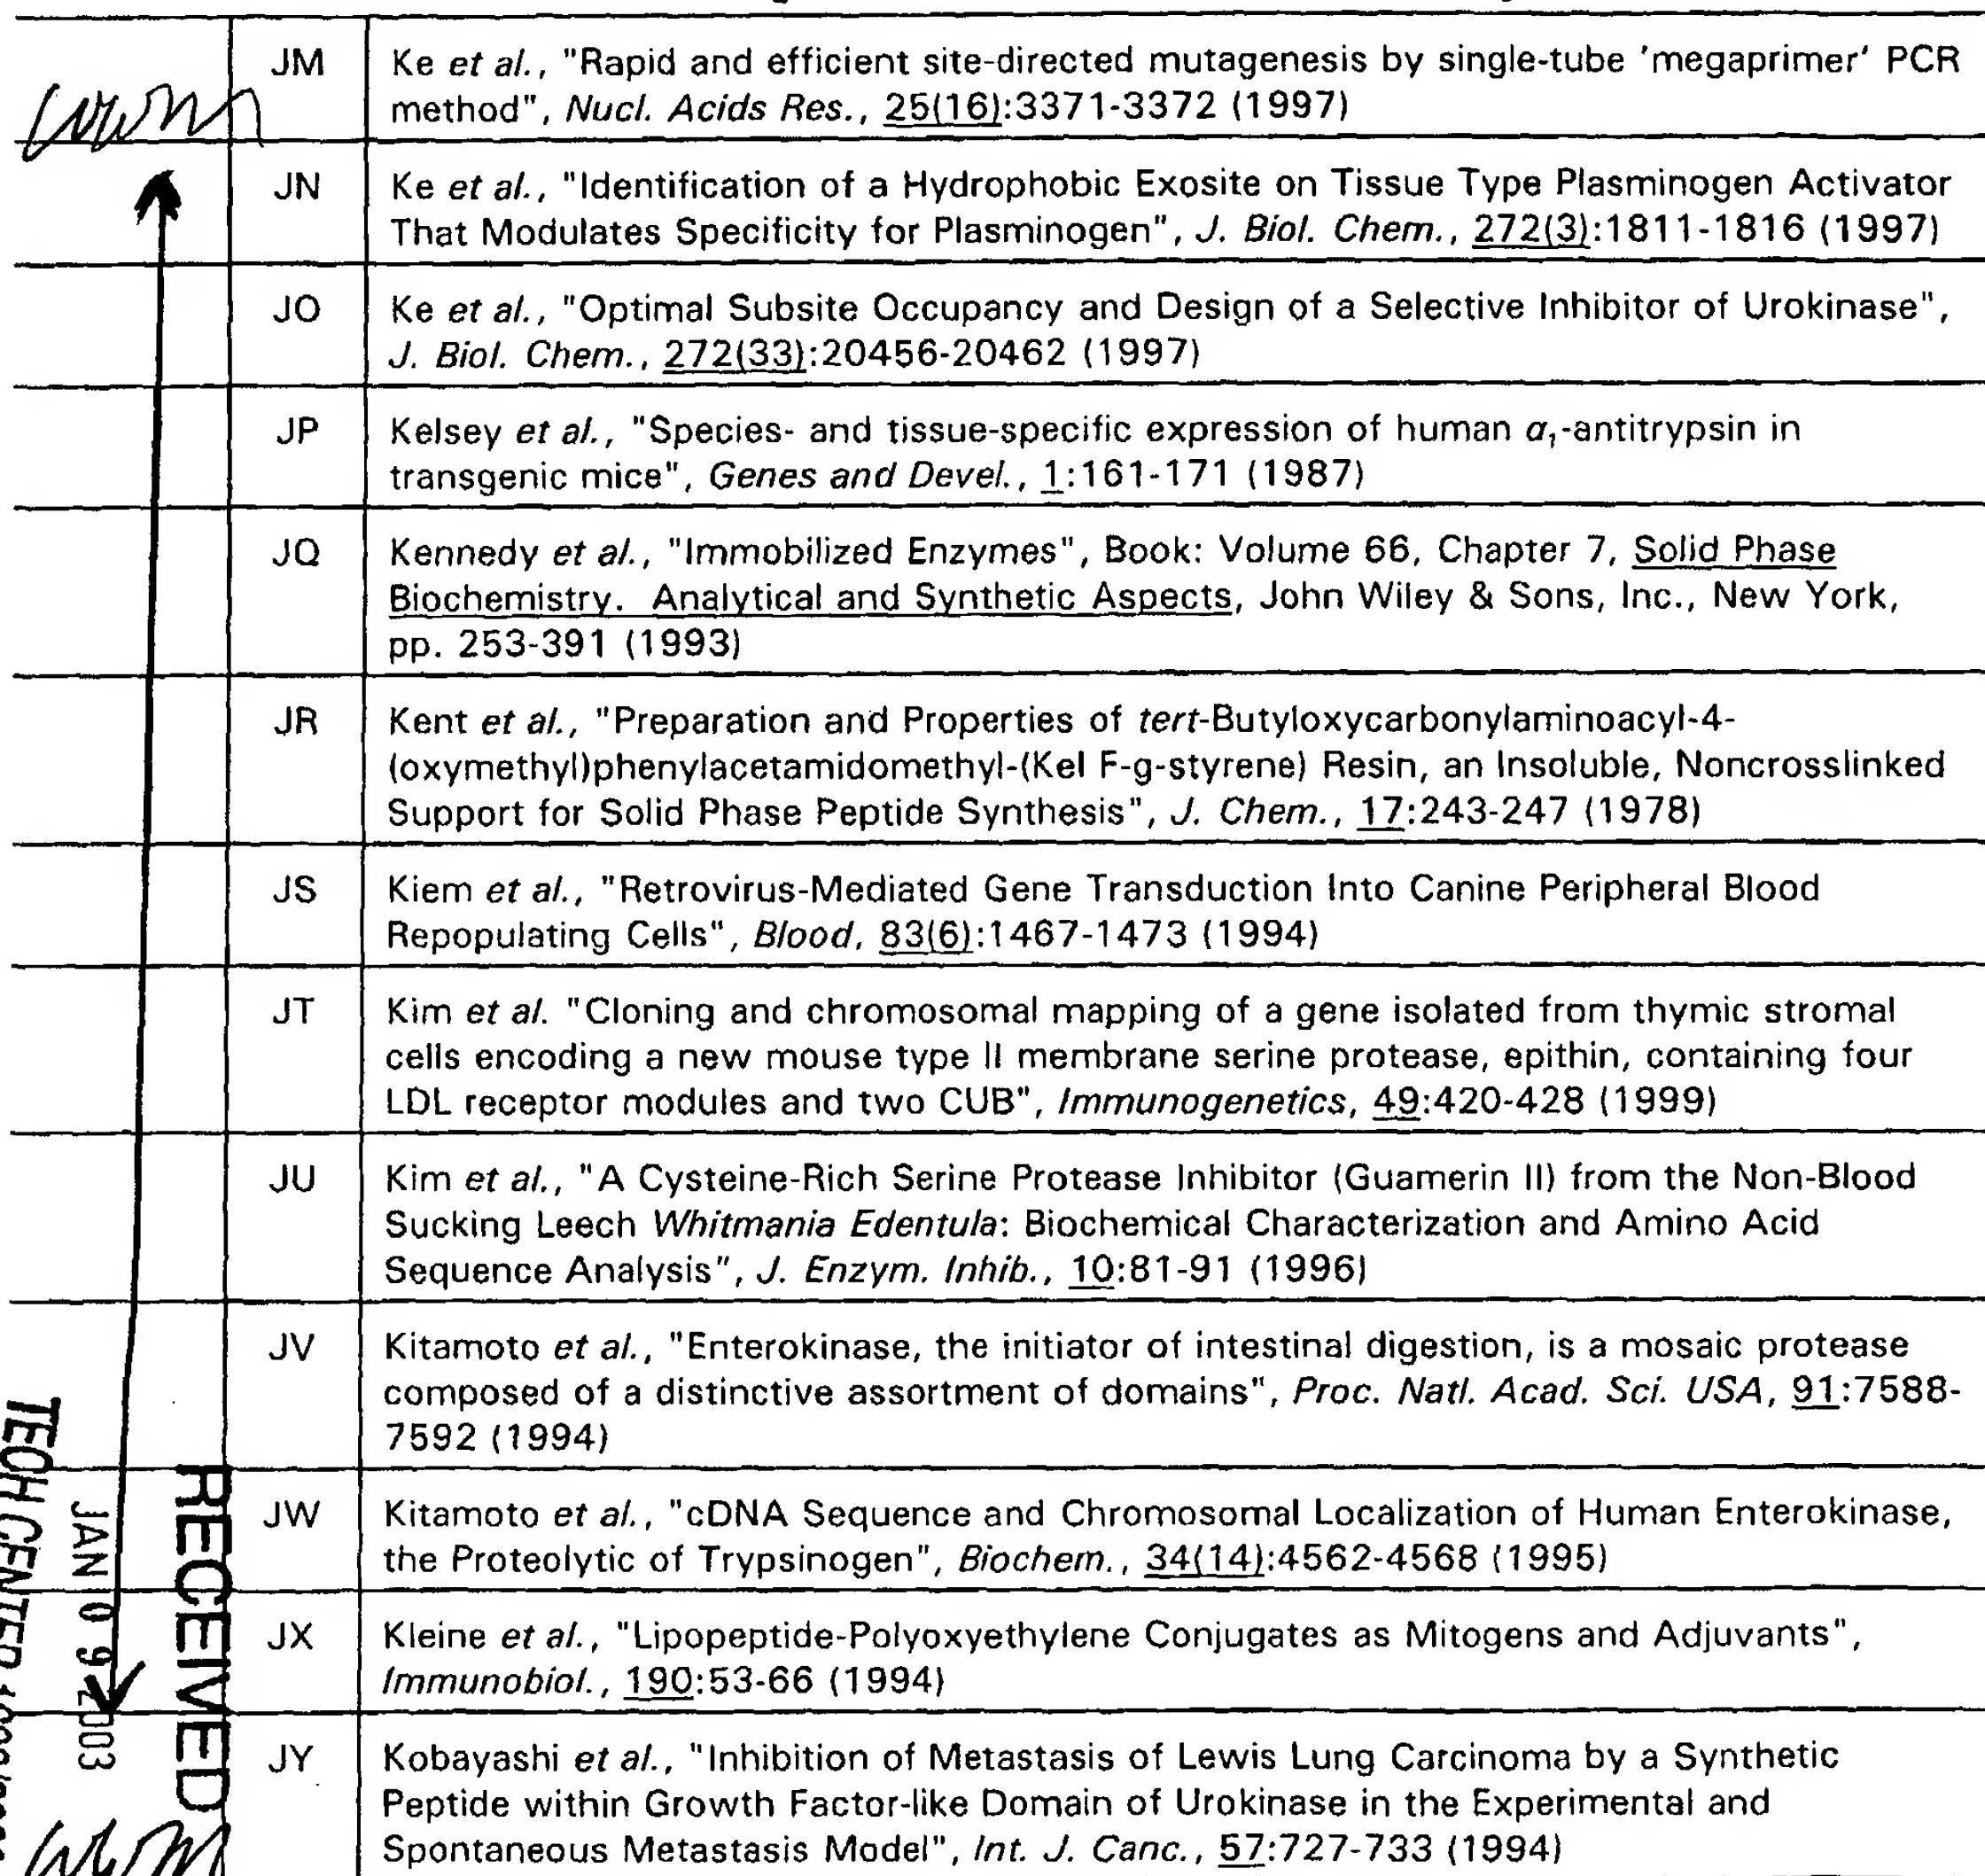 JM
Ke et al., "Rapid and efficient site-directed mutagenesis by single-tube 'megaprimer' PCR
method", Nucl. Acids Res., 25(16):3371-3372 (1997)
JN
Ke et al., "Identification of a Hydrophobic Exosite on Tissue Type Plasminogen Activator
That Modulates Specificity for Plasminogen", J. Biol. Chem., 272(3):1811-1816 (1997)
JO
Ke et al., "Optimal Subsite Occupancy and Design of a Selective Inhibitor of Urokinase",
J. Biol. Chem., 272(33):20456-20462 (1997)
JP
Kelsey et al., "Species- and tissue-specific expression of human α₁-antitrypsin in
transgenic mice", Genes and Devel., 1:161-171 (1987)
JQ
Kennedy et al., "Immobilized Enzymes", Book: Volume 66, Chapter 7, Solid Phase
Biochemistry. Analytical and Synthetic Aspects, John Wiley & Sons, Inc., New York,
pp. 253-391 (1993)
JR
Kent et al., "Preparation and Properties of tert-Butyloxycarbonylaminoacyl-4-
(oxymethyl)phenylacetamidomethyl-(Kel F-g-styrene) Resin, an Insoluble, Noncrosslinked
Support for Solid Phase Peptide Synthesis", J. Chem., 17:243-247 (1978)
JS
Kiem et al., "Retrovirus-Mediated Gene Transduction Into Canine Peripheral Blood
Repopulating Cells", Blood, 83(6):1467-1473 (1994)
JT
Kim et al. "Cloning and chromosomal mapping of a gene isolated from thymic stromal
cells encoding a new mouse type II membrane serine protease, epithin, containing four
LDL receptor modules and two CUB", Immunogenetics, 49:420-428 (1999)
JU
Kim et al., "A Cysteine-Rich Serine Protease Inhibitor (Guamerin II) from the Non-Blood
Sucking Leech Whitmania Edentula: Biochemical Characterization and Amino Acid
Sequence Analysis", J. Enzym. Inhib., 10:81-91 (1996)
JV
Kitamoto et al., "Enterokinase, the initiator of intestinal digestion, is a mosaic protease
composed of a distinctive assortment of domains", Proc. Natl. Acad. Sci. USA, 91:7588-
7592 (1994)
JW
Kitamoto et al., "cDNA Sequence and Chromosomal Localization of Human Enterokinase,
the Proteolytic of Trypsinogen", Biochem., 34(14):4562-4568 (1995)
JX
Kleine et al., "Lipopeptide-Polyoxyethylene Conjugates as Mitogens and Adjuvants",
Immunobiol., 190:53-66 (1994)
JY
Kobayashi et al., "Inhibition of Metastasis of Lewis Lung Carcinoma by a Synthetic
Peptide within Growth Factor-like Domain of Urokinase in the Experimental and
Spontaneous Metastasis Model", Int. J. Canc., 57:727-733 (1994)
RECEIVED
JAN 09 2003
TECH CENTER